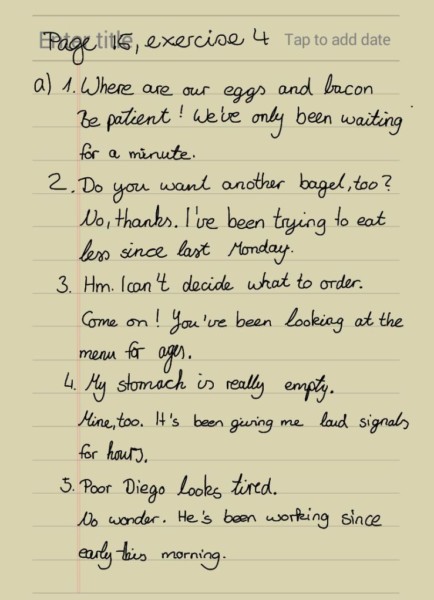 Page 16, exercise 4
Enter title
Tap to add date
a) 1. Where are our eggs and bacon
Be patient! We've only been waiting
for a minute.
2. Do you want another bagel, too?
No, thanks. I've been trying to eat
less since last Monday.
3. Hm. I can't decide what to order.
Come on! You've been looking at the
menu for ages.
4. My stomach is really empty.
Mine, too. It's been giving me loud signals
for hours.
5. Poor Diego looks tired.
No wonder. He's been working since
early this morning.